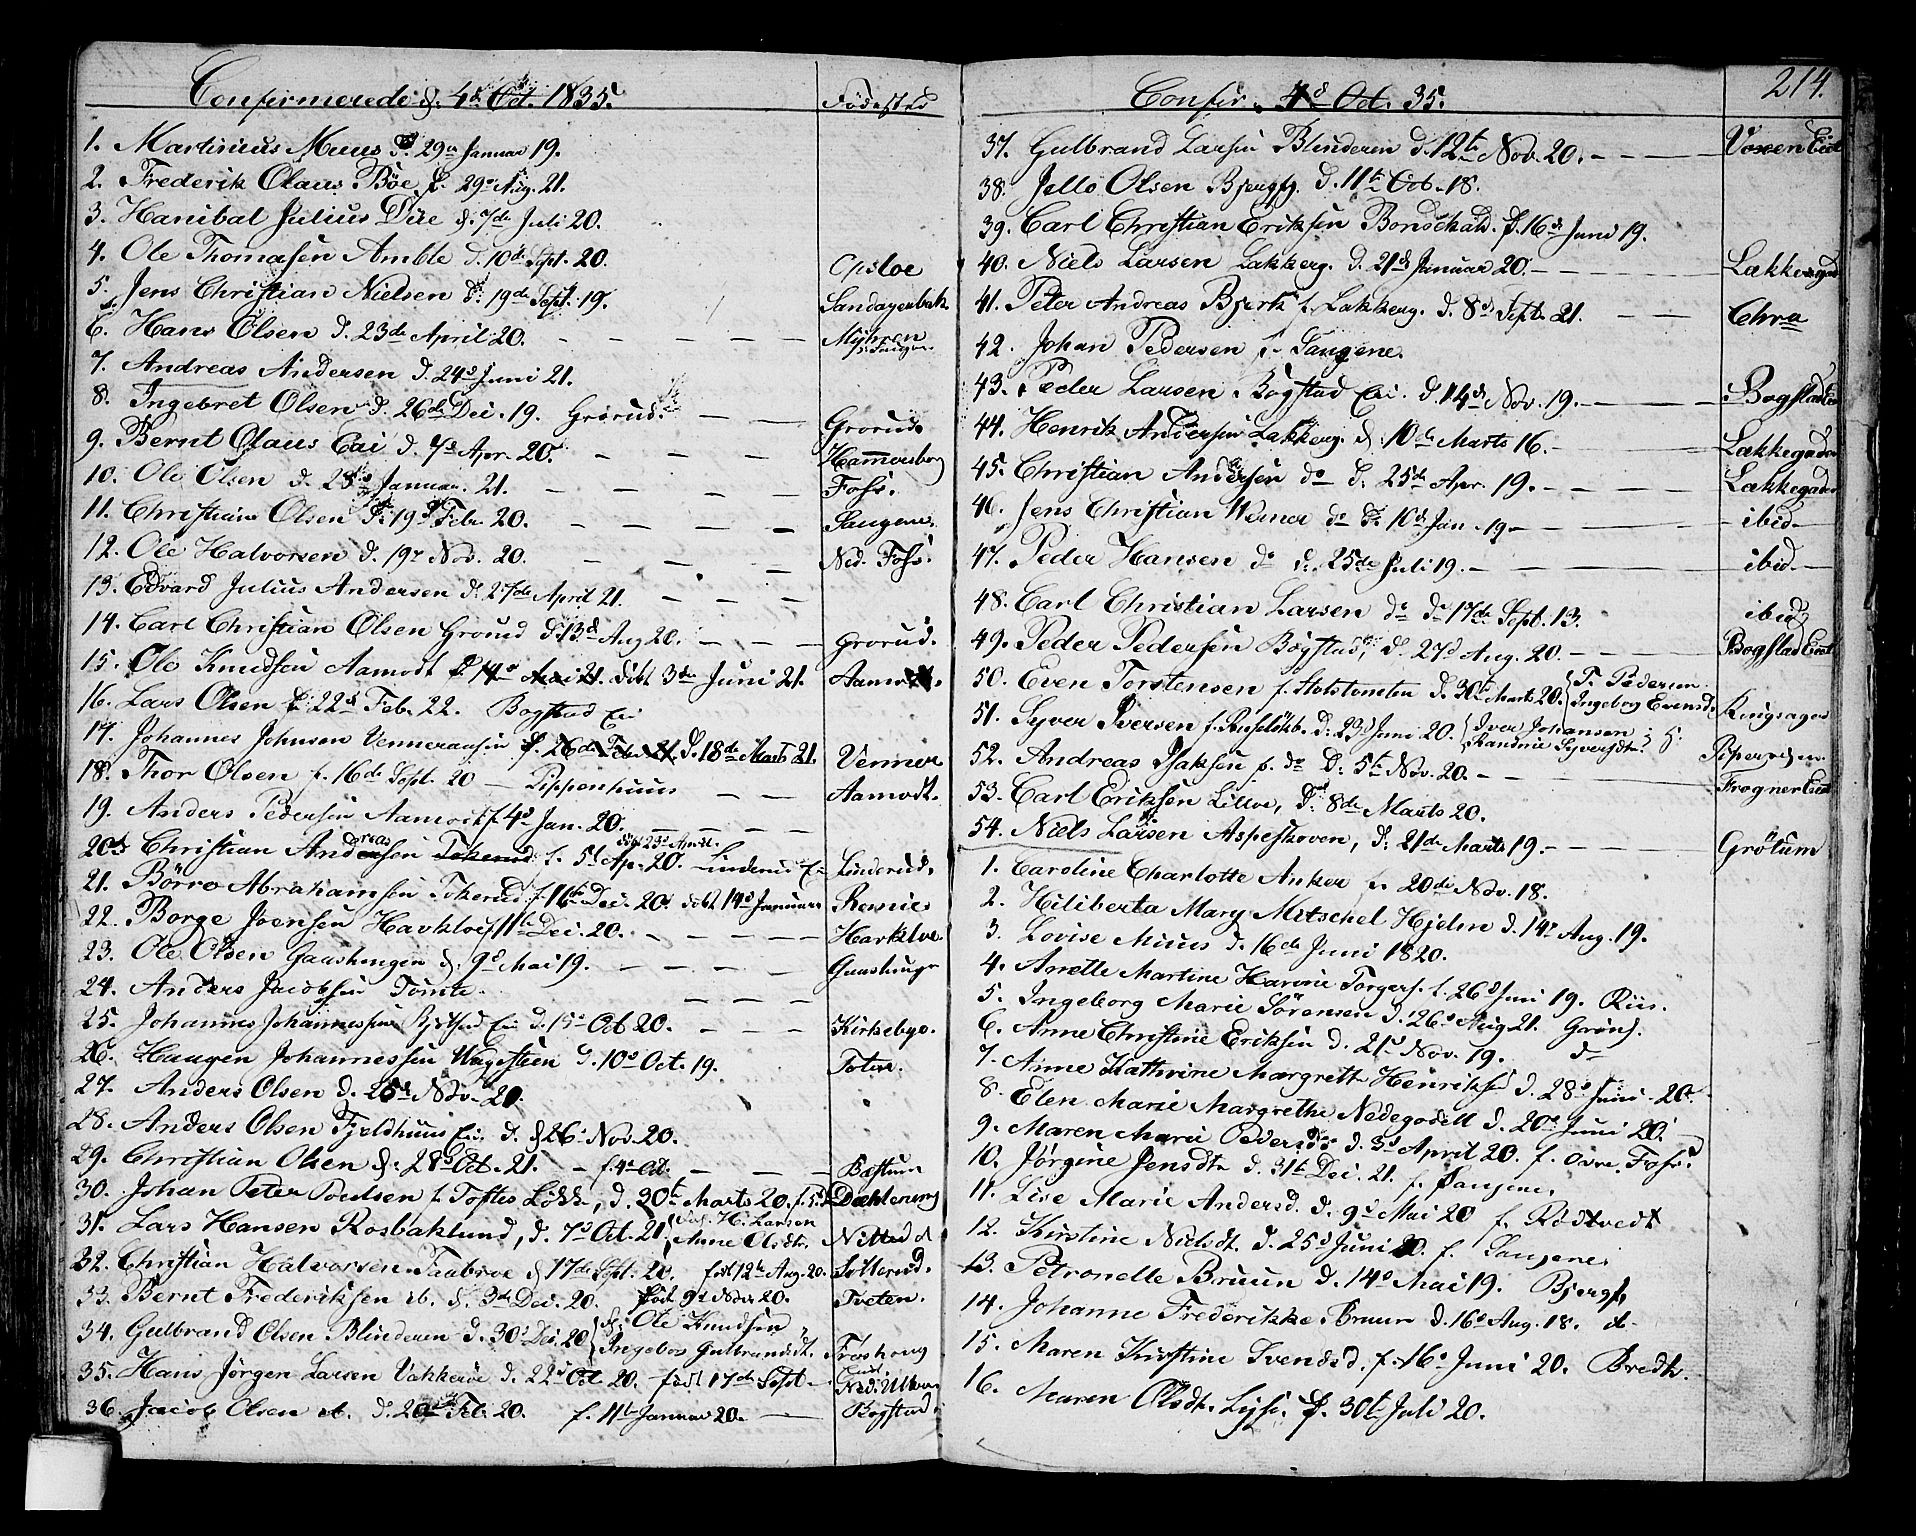 Confirmerede d. 4de Oct. 1835. Fødested
1. Martinius Muus d. 29de Januar 19.
2. Frederik Olaus Böe f. 29de Aug. 21.
3. Hanibal Julius Due d. 7de Juli 20.
4. Ole Thomasen Amble d. 10de Sept. 20. Opsloe
5. Jens Christian Nielsen d. 19de Sept. 19. Sandagerbak
6. Hans Olsen d. 23de April 20. Myhren
7. Andreas Andersen d. 24de Juni 21.
8. Ingebret Olsen d. 26de Dec. 19. Grorud. Grorud
9. Bernt Olaus Cai d. 7de Apr. 20. Hammersborg
10. Ole Olsen d. 28de Januar 21. Foss.
11. Christian Olsen d. 19de Febr. 20. Saugene
12. Ole Halvorsen d. 19de Nov. 20. Ned. Foss.
13. Edvard Julius Andersen d. 27de April 21.
14. Carl Christian Olsen Grorud d. 13de Aug 20. Grorud.
15. Ole Knudsen Aamodt f. 14de Mai 21. döbt 3de Juni 21. Aamodt.
16. Lars Olsen f. 22de Feb. 22. Bogstad Ei
17. Johannes Johnsen d. 26de Feb. 21. d. 18de Marts 21.
18. Thor Olsen f. 16de Sept. 20 Pippenhuus Aamodt.
19. Anders Pedersen Aamodt f. 4de Jan. 20.
20. Christian Andersen f. 5de Ap. 20. Linderud Ei Linderud.
21. Börre Abrahamsen Tokerud f. 16de Dec. 20. döbt 14de Januar
22. Borge Joensen Havklve f. 11te Dec. 20. Harklve
23. Ole Olsen d. 9de Mai 19.
24. Anders Jacobsen Tomte
25. Johannes Johannessen d. 15de Oct 20. Kirkebye.
26. Haagen Johannessen d. 10de Oct. 19. Toten
27. Anders Olsen d. 25de Nov. 20.
28. Anders Olsen Fjeldhuus Ei. d. 26de Nov. 20.
29. Christian Olsen d. 28de Oct. 21. f. 4de Oct. Bæstum
30. Johan Peter Poulsen f. Toftes Lökke, d. 30te Marts 20.
31. Lars Hansen Rosbaklund, d. 7de Oct. 21. H. Larsen Anne Olsdtr. Nittedal
32. Christian Halvorsen d. 17de Sept. 20. född 12te Aug. 20.
33. Bernt Frederiksen ib. d. 3de Dec. 20. född 9de Nov. 20. Tveten.
34. Gulbrand Olsen Blinderen d. 30te Dec. 20. Ole Knudsen Ingeborg Gulbrandsdt.
35. Hans Jörgen Larsen Vakkeröe d. 22de Oct 20. född 17de Sept
36. Jacob Olsen d. 20de Feb. 20. f. 11te Januar 20. Bogstad
Confir. 4de Oct. 35. 214.
37. Gulbrand Larsen Blinderen d. 12te Nov. 20. Voxen
38. Jello Olsen Bjergsg. d. 11te Oct. 18.
39. Carl Christian Eriksen d. 16de Juni 19.
40. Niels Larsen Lakkeg. d. 21de Januar 20. Lakkegad
41. Peter Andreas Bjerk f. Lakkeg. d. 8de Sept. 21. Chra
42. Johan Pedersen f. Saugene.
43. Peder Larsen Bogstad Ei. d. 14de Nov. 19. Bogstad
44. Henrik Andersen Lakkeg. d. 10de Marts 16. Lakkegaden
45. Christian Andersen do d. 25de Apr. 19. Lakkegaden
46. Jens Christian Werner do d. 10de Jan. 19 ibid
47. Peder Hansen do d. 25de Juli 19. ibid.
48. Carl Christian Larsen do d. 17de Sept. 13. ibid
49. Peder Pedersen Bogstad, d. 27de Aug. 20. Bogstad
50. Even Torstensen d. 30te Marts 20. T. Pedersen Ingeborg Evensd. Ringsager
51. Syver Iversen d. 23de Juni 20. Iver Johansen
52. Andreas Isaksen f. do d. 5te Nov. 20. Pipervigen
53. Carl Eriksen Lilloe, d. 8de Marts 20. Frogner
54. Niels Larsen Aspeskoven, d. 21de Marts 19. Grötum
1. Caroline Charlotte Anker f. 20de Nov. 18.
2. Hiliberta Mary Mitschel Hjelm d. 14de Aug. 19.
3. Lovise Muus d. 16de Juni 1820.
4. Anette Martine Torgers. f. 26de Juni 19. Riis.
5. Ingeborg Marie Sörensen d. 26de Aug 21. Gröns.
6. Anne Christine Eriksen d. 21de Nov. 19. do
7. Anne Kathrine Margrett Henriksd d. 28de Juni 20.
8. Elen Marie Margrethe Nedegodell d. 20de Juni 20.
9. Maren Marie Pedersd d. 3de April 20. f. Övre Foss.
10. Jörgine Jensdt. d. 31te Dec. 21. f. Saugene.
11. Lise Marie Andersd. d. 9de Mai 20 f. Rödtvedt
12. Kirstine Nielsdt. d. 25de Juni 20. f. Saugene
13. Petronelle Bruun d. 14de Mai 19. Bjergs.
14. Johanne Frederikke Bruun d. 16de Aug. 18. do
15. Maren Kirstine Svendsd. f. 16de Juni 20. Bredtv.
16. Maren Olsdt. f. 30te Juli 20.